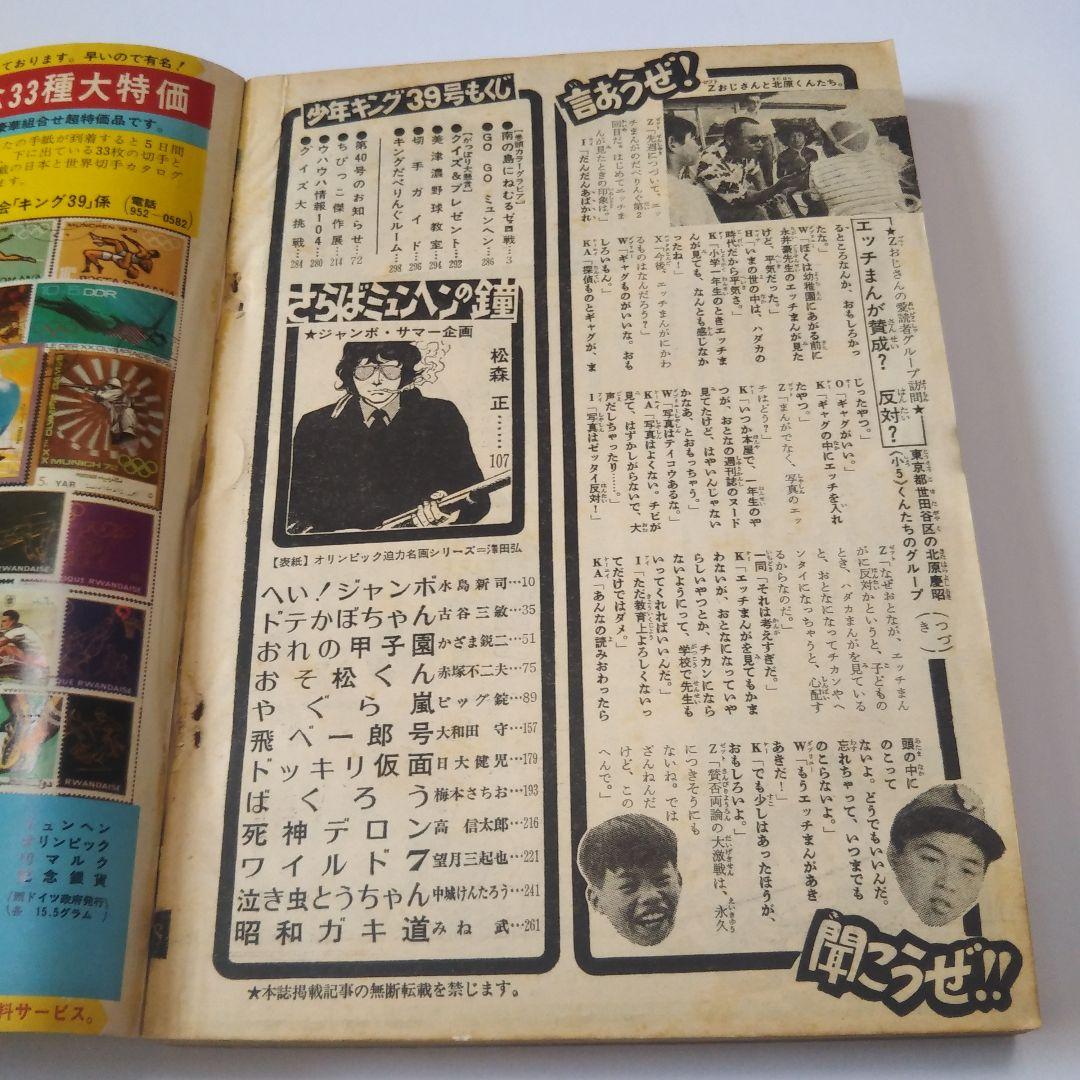 ております。早いので有名!
33種大特価
豪華組合せ超特価品です。
たの手紙が到着すると5日間
下に出ている33枚の切手と
の日本と世界切手カタログ
ます。
会「キング39」係
(電話
952−0582)
MÜNCHEN 1972
DDR
MUNICH 72
5. YAR
RWANDAISE
RWANDAISE
RWANDAISE
RWANDAISE
ミュンヘン
オリンピック
マルク
記念銀貨
ドイツ政府発行
各 15.5グラム
料サービス。
少年キング39号もくじ
【巻頭カラーグラビア】
●南の島にねむるゼロ戦…3
●GO GO ミュンヘン…286
【がっぽり大懸賞】
●クイズ&プレゼント…292
●美津濃野球教室…294
●切手ガイド…296
●キングだべりんぐルーム…298
●第40号のお知らせ…72
●ちびっこ傑作展…214
●ウハウハ情報104…280
●クイズ大挑戦…284
さらばミュンヘンの鐘
★ジャンボ・サマー企画
松森 正……107
【表紙】オリンピック迫力名画シリーズ=澤田弘
へい!ジャンボ 水島新司…10
ドテかぼちゃん 古谷三敏…35
おれの甲子園 かざま鋭二…51
おそ松くん 赤塚不二夫…75
やぐら嵐 ビッグ錠…89
飛べ一郎号 大和田 守…157
ドッキリ仮面 日大健児…179
ばくろう 梅本さちお…193
死神デロン 高 信太郎…216
ワイルド7 望月三起也…221
泣き虫とうちゃん 中城けんたろう…241
昭和ガキ道 みね 武…261
★本誌掲載記事の無断転載を禁じます。
言おうぜ!
Zおじさんと北原くんたち。
★Zおじさんの愛読者グループ訪問★
エッチまんが賛成? 反対?
東京都世田谷区の北原慶昭
(小5)くんたちのグループ
Z「先週につづいて、エッ
チまんがのだべりんぐ第2
回目だ。はじめてエッチま
んが見たときの印象は。」
I「だんだんあばかれ
るところなんか、おもしろかっ
たな。」
W「ぼくは幼稚園にあがる前に
永井豪先生のエッチまんが見た
けど、平気だった。」
H「いまの世の中は、ハダカの
時代だから平気さ。」
K「小学一年生のときエッチま
んが見ても、なんとも感じなか
ったね!」
X「今後、エッチまんがにかわ
るものはなんだろう?」
W「ギャグものがいいな。おも
しろいもん。」
KA「探偵ものとギャグが、ま
じったやつ。」
O「ギャグがいい。」
K「ギャグの中にエッチを入れ
たやつ。」
Z「まんがでなく、写真のエッ
チはどう?」
K「いつか本屋で、一年生のや
つが、おとなの週刊誌のヌード
見てたけど、はやいんじゃない
かなあ、とおもっちゃう。」
W「写真はテイコウあるな。」
KA「写真はよくない。チビが
見て、はずかしがらないで、大
声だしちゃったり……。」
I「写真はゼッタイ反対!」
Z「なぜおとなが、エッチまん
がに反対かというと、子どもの
とき、ハダカまんがを見ている
と、おとなになってチカンやヘ
ンタイになっちゃうと、心配す
るからなのだ。」
一同「それは考えすぎだ。」
K「エッチまんがを見てもかま
わないが、おとなになっていや
らしいやつとか、チカンになら
ないようにって、学校で先生も
いってくれればいいんだ。」
I「ただ教育上よろしくないっ
てだけではダメ。」
KA「あんなの読みおわったら
頭の中に
のこって
ないよ。どうでもいいんだ。
忘れちゃって、いつまでも
のこらないよ。」
W「もうエッチまんがあき
あきだ!」
K「でも少しはあったほうが、
おもしろいよ。」
Z「賛否両論の大激戦は、永久
につきそうにも
ないね。では
ざんねんだ
けど、この
へんで。」
(つづき)
聞こうぜ!!